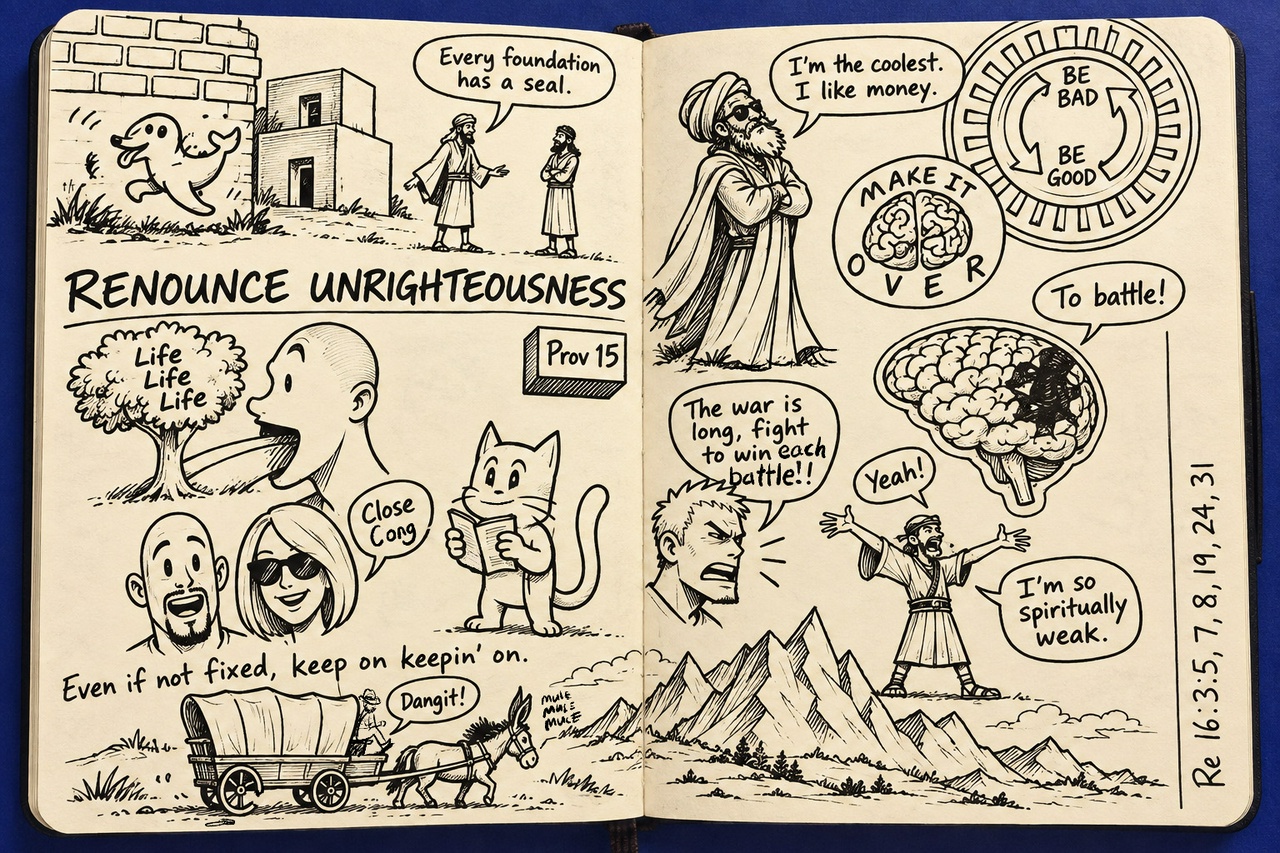 Every foundation
has a seal.
RENOUNCE UNRIGHTEOUSNESS
Life
Life
Life
Prov 15
Close
Cong
Even if not fixed, keep on keepin' on.
Dangit!
MULE
MULE
MULE
I'm the coolest.
I like money.
BE
BAD
BE
GOOD
MAKE IT
OVER
To battle!
The war is
long, fight
to win each
battle!!
Yeah!
I'm so
spiritually
weak.
Re 16:3:5, 7, 8, 19, 24, 31